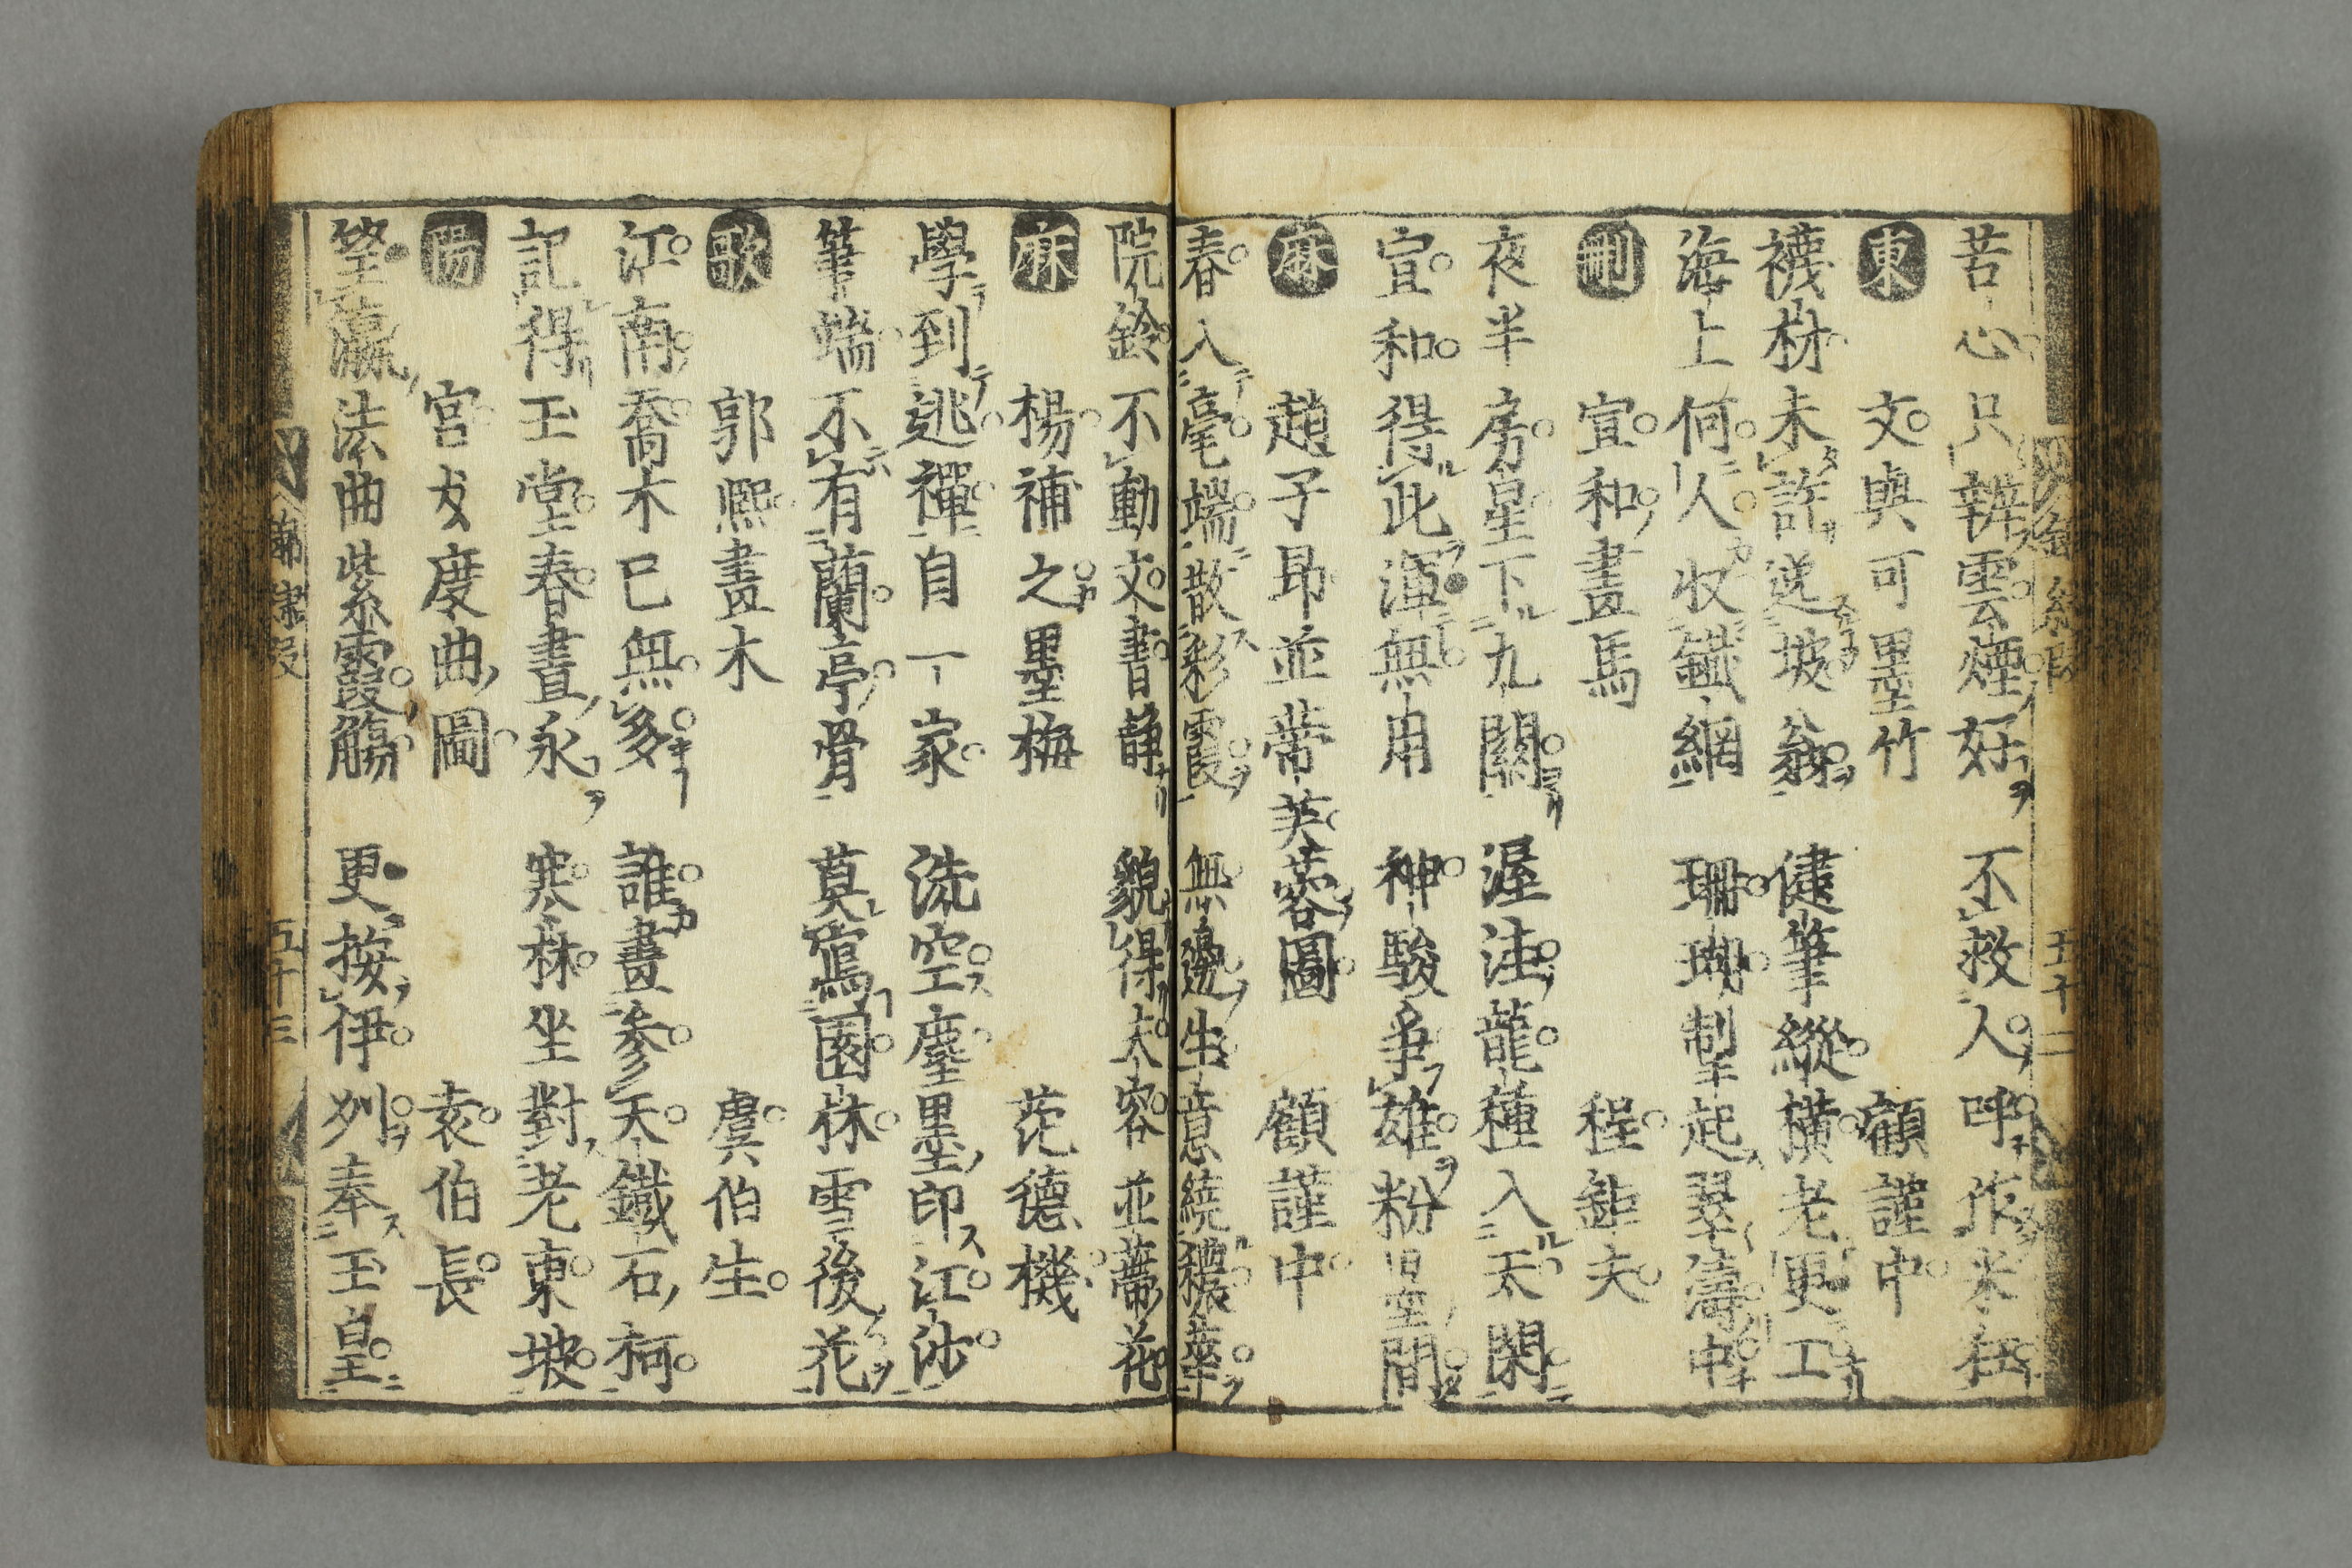 苦心只辨雲煙好　不救人呼作米
東　文與可墨竹　顧謹中
襪材未許送坡翁　健筆縱横老更工
海上何人收鐵網　珊瑚掣起翠濤中
刪　宣和畫馬　程鉅夫
夜半房星下九關　渥洼龍種入天閑
宣和得此渾無用　神駿爭雄粉墨間
麻　趙子昂並蒂芙蓉圖　顧謹中
春入毫端散彩霞　無邊生意繞穠華
院鈴不動文書静　貌得太容並蒂花
麻　楊補之墨梅　范德機
學到逃禪自一家　洗空塵墨印江沙
筆端不有蘭亭骨　莫寫園林雪後花
歌　郭熙畫木　虞伯生
江南喬木已無多　誰畫參天鐵石柯
記得玉堂春晝永　寒林坐對老東坡
陽　宮女度曲圖　袁伯長
瀛法曲紫霞觴　更按伊州奉玉皇
五十二
五十三